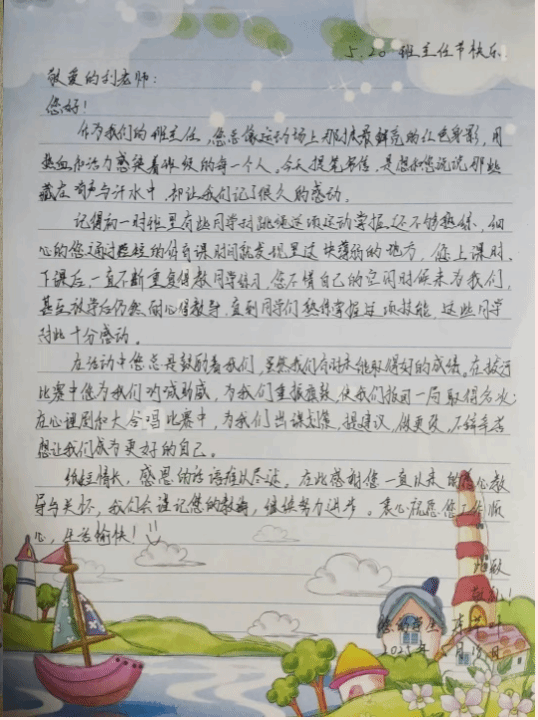 5.20 班主任节快乐
敬爱的刘老师：
您好！
作为我们的班主任，您总像运动场上那抹最鲜亮的红色身影，用
热血和活力感染着班级的每一个人。今天提笔写信，是想和您说说那些
藏在哨声与汗水中，却让我们记了很久的感动。
记得初一时班里有些同学对跳绳这项运动掌握还不够熟练，细
心的您通过短短的体育课时间就发现里这块薄弱的地方，您上课时、
下课后，一直不断重复得教同学练习，您不惜自己的空闲时候来为我们，
甚至放学后仍然耐心得教导，直到同学们熟练掌握这项技能，这些同学
对此十分感动。
在活动中您总是鼓励着我们，虽然我们有时未能取得好的成绩。在拔河
比赛中您为我们呐喊助威，为我们重振旗鼓，使我们扳回一局取得名次；
在心理剧和大合唱比赛中，为我们出谋划策，提建议，做更改，不辞辛苦
想让我们成为更好的自己。
纸短情长，感恩的话语难以尽谈。在此感谢您一直以来的悉心教
导与关怀，我们会谨记您的教诲，继续努力进步。衷心祝愿您工作顺
心，生活愉快！
此致
敬礼！
您的学生
2025年5月18日